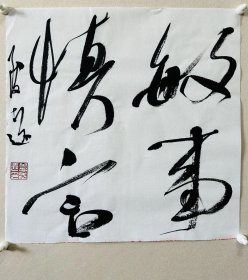 敏事
慎言